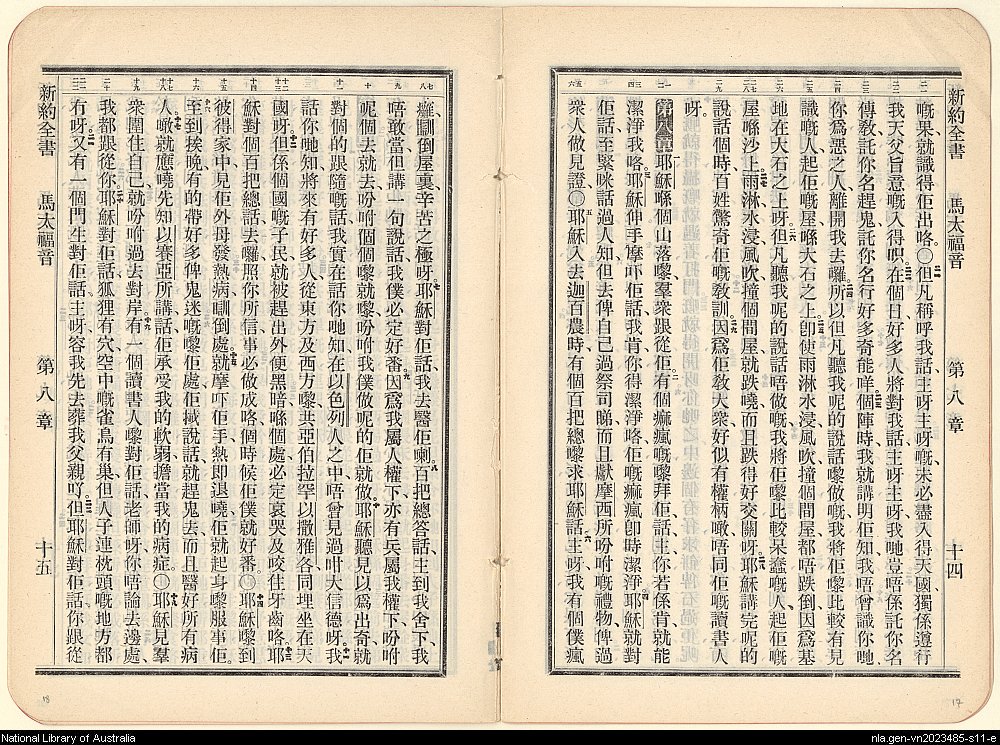 新約全書 馬太福音 第八章 十四
嘅果就識得佢出咯○但凡稱呼我話主呀主呀嘅未必盡入得天國獨係遵行
我天父旨意嘅入得呮在個日好多人將對我話主呀主呀我哋豈唔係託你名
傳敎託你名趕鬼託你名行好多奇能咩個陣時我就講明佢知我唔曾識你哋
你爲惡之人離開我去囉所以但凡聽我呢的說話嚟做嘅我將佢嚟比較有見
識嘅人起佢嘅屋喺大石之上卽使雨淋水浸風吹撞個間屋都唔跌倒因爲基
地在大石之上呀但凡聽我呢的說話唔做嘅我將佢嚟比較呆蠢嘅人起佢嘅
屋喺沙上雨淋水浸風吹撞個間屋就跌嘵而且跌得好交關呀耶穌講完呢的
說話個時百姓驚奇佢嘅敎訓因爲佢敎大衆好似有權柄噉唔同佢嘅讀書人
呀
第八章耶穌喺個山落嚟羣衆跟從佢有個痲瘋嘅嚟拜佢話主你若係肯就能
潔淨我咯耶穌伸手摩吓佢話我肯你得潔淨咯佢嘅痲瘋卽時潔淨耶穌就對
佢話至緊咪話過人知但去俾自己過祭司睇而且獻摩西所吩咐嘅禮物俾過
衆人做見證○耶穌入去迦百農時有個百把總嚟求耶穌話主呀我有個僕瘋
癱瞓倒屋裏辛苦之極呀耶穌對佢話我去醫佢喇百把總答話主到我舍下我
唔敢當但講一句說話我僕必定好番因爲我屬人權下亦有兵屬我權下吩咐
呢個去就去吩咐個個嚟就嚟吩咐我僕做呢的佢就做耶穌聽見以爲出奇就
對個的跟隨嘅話我實在話你哋知在以色列人之中唔曾見過咁大信德呀我
話你哋知將來有好多人從東方及西方嚟共亞伯拉罕以撒雅各同埋坐在天
國呀但係個國嘅子民就被趕出外便黑暗喺個處必定哀哭及咬住牙齒咯耶
穌對個百把總話去囉照你所信事必做成咯個時候佢僕就好番○耶穌嚟到
彼得家中見佢外母發熱病瞓倒處就摩吓佢手熱卽退嘵佢就起身嚟服事佢
至到挨晚有的帶好多俾鬼迷嘅嚟佢處佢搣說話就趕鬼去而且醫好所有病
人噉就應嘵先知以賽亞所講話佢承受我的軟弱擔當我的病症○耶穌見羣
衆圍住自己就吩咐過去對岸有一個讀書人嚟對佢話老師呀你唔論去邊處
我都跟從你耶穌對佢話狐狸有穴空中嘅雀鳥有巢但人子連枕頭嘅地方都
冇呀又有一個門生對佢話主呀容我先去葬我父親吖但耶穌對佢話你跟從
新約全書 馬太福音 第八章 十五
18
17
National Library of Australia
nla.gen-vn2023485-s11-e